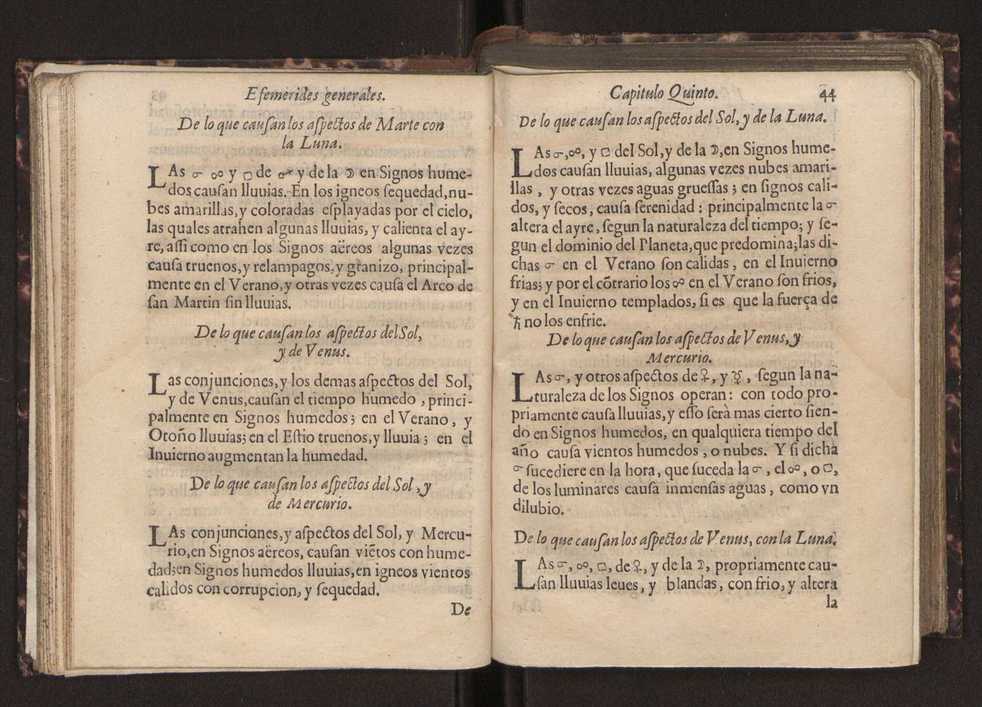 Efemerides generales.
De lo que causan los aspectos de Marte con
la Luna.
LAs ☌ ☍ y □ de ♂ y de la ☽ en Signos hume-
dos causan lluuias. En los igneos sequedad, nu-
bes amarillas, y coloradas esplayadas por el cielo,
las quales atrahen algunas lluuias, y calienta el ay-
re, assi como en los Signos aëreos algunas vezes
causa truenos, y relampagos, y granizo, principal-
mente en el Verano, y otras vezes causa el Arco de
san Martin sin lluuias.
De lo que causan los aspectos del Sol,
y de Venus.
Las conjunciones, y los demas aspectos del Sol,
y de Venus, causan el tiempo humedo, princi-
palmente en Signos humedos; en el Verano, y
Otoño lluuias; en el Estio truenos, y lluuia; en el
Inuierno augmentan la humedad.
De lo que causan los aspectos del Sol, y
de Mercurio.
LAs conjunciones, y aspectos del Sol, y Mercu-
rio, en Signos aëreos, causan viẽtos con hume-
dad; en Signos humedos lluuias, en igneos vientos
calidos con corrupcion, y sequedad.
De
Capitulo Quinto. 44
De lo que causan los aspectos del Sol, y de la Luna.
LAs ☌, ☍, y □ del Sol, y de la ☽, en Signos hume-
dos causan lluuias, algunas vezes nubes amari-
llas, y otras vezes aguas gruessas; en signos cali-
dos, y secos, causa serenidad: principalmente la ☌
altera el ayre, segun la naturaleza del tiempo; y se-
gun el dominio del Planeta, que predomina; las di-
chas ☌ en el Verano son calidas, en el Inuierno
frias; y por el cõtrario los ☍ en el Verano son frios,
y en el Inuierno templados, si es que la fuerça de
♄ no los enfrie.
De lo que causan los aspectos de Venus, y
Mercurio.
LAs ☌, y otros aspectos de ♀, y ☿, segun la na-
turaleza de los Signos operan: con todo pro-
priamente causa lluuias, y esso serà mas cierto sien-
do en Signos humedos, en qualquiera tiempo del
año causa vientos humedos, o nubes. Y si dicha
☌ sucediere en la hora, que suceda la ☌, el ☍, o □,
de los luminares causa inmensas aguas, como vn
dilubio.
De lo que causan los aspectos de Venus, con la Luna.
LAs ☌, ☍, □, de ♀, y de la ☽, propriamente cau-
san lluuias leues, y blandas, con frio, y altera
la